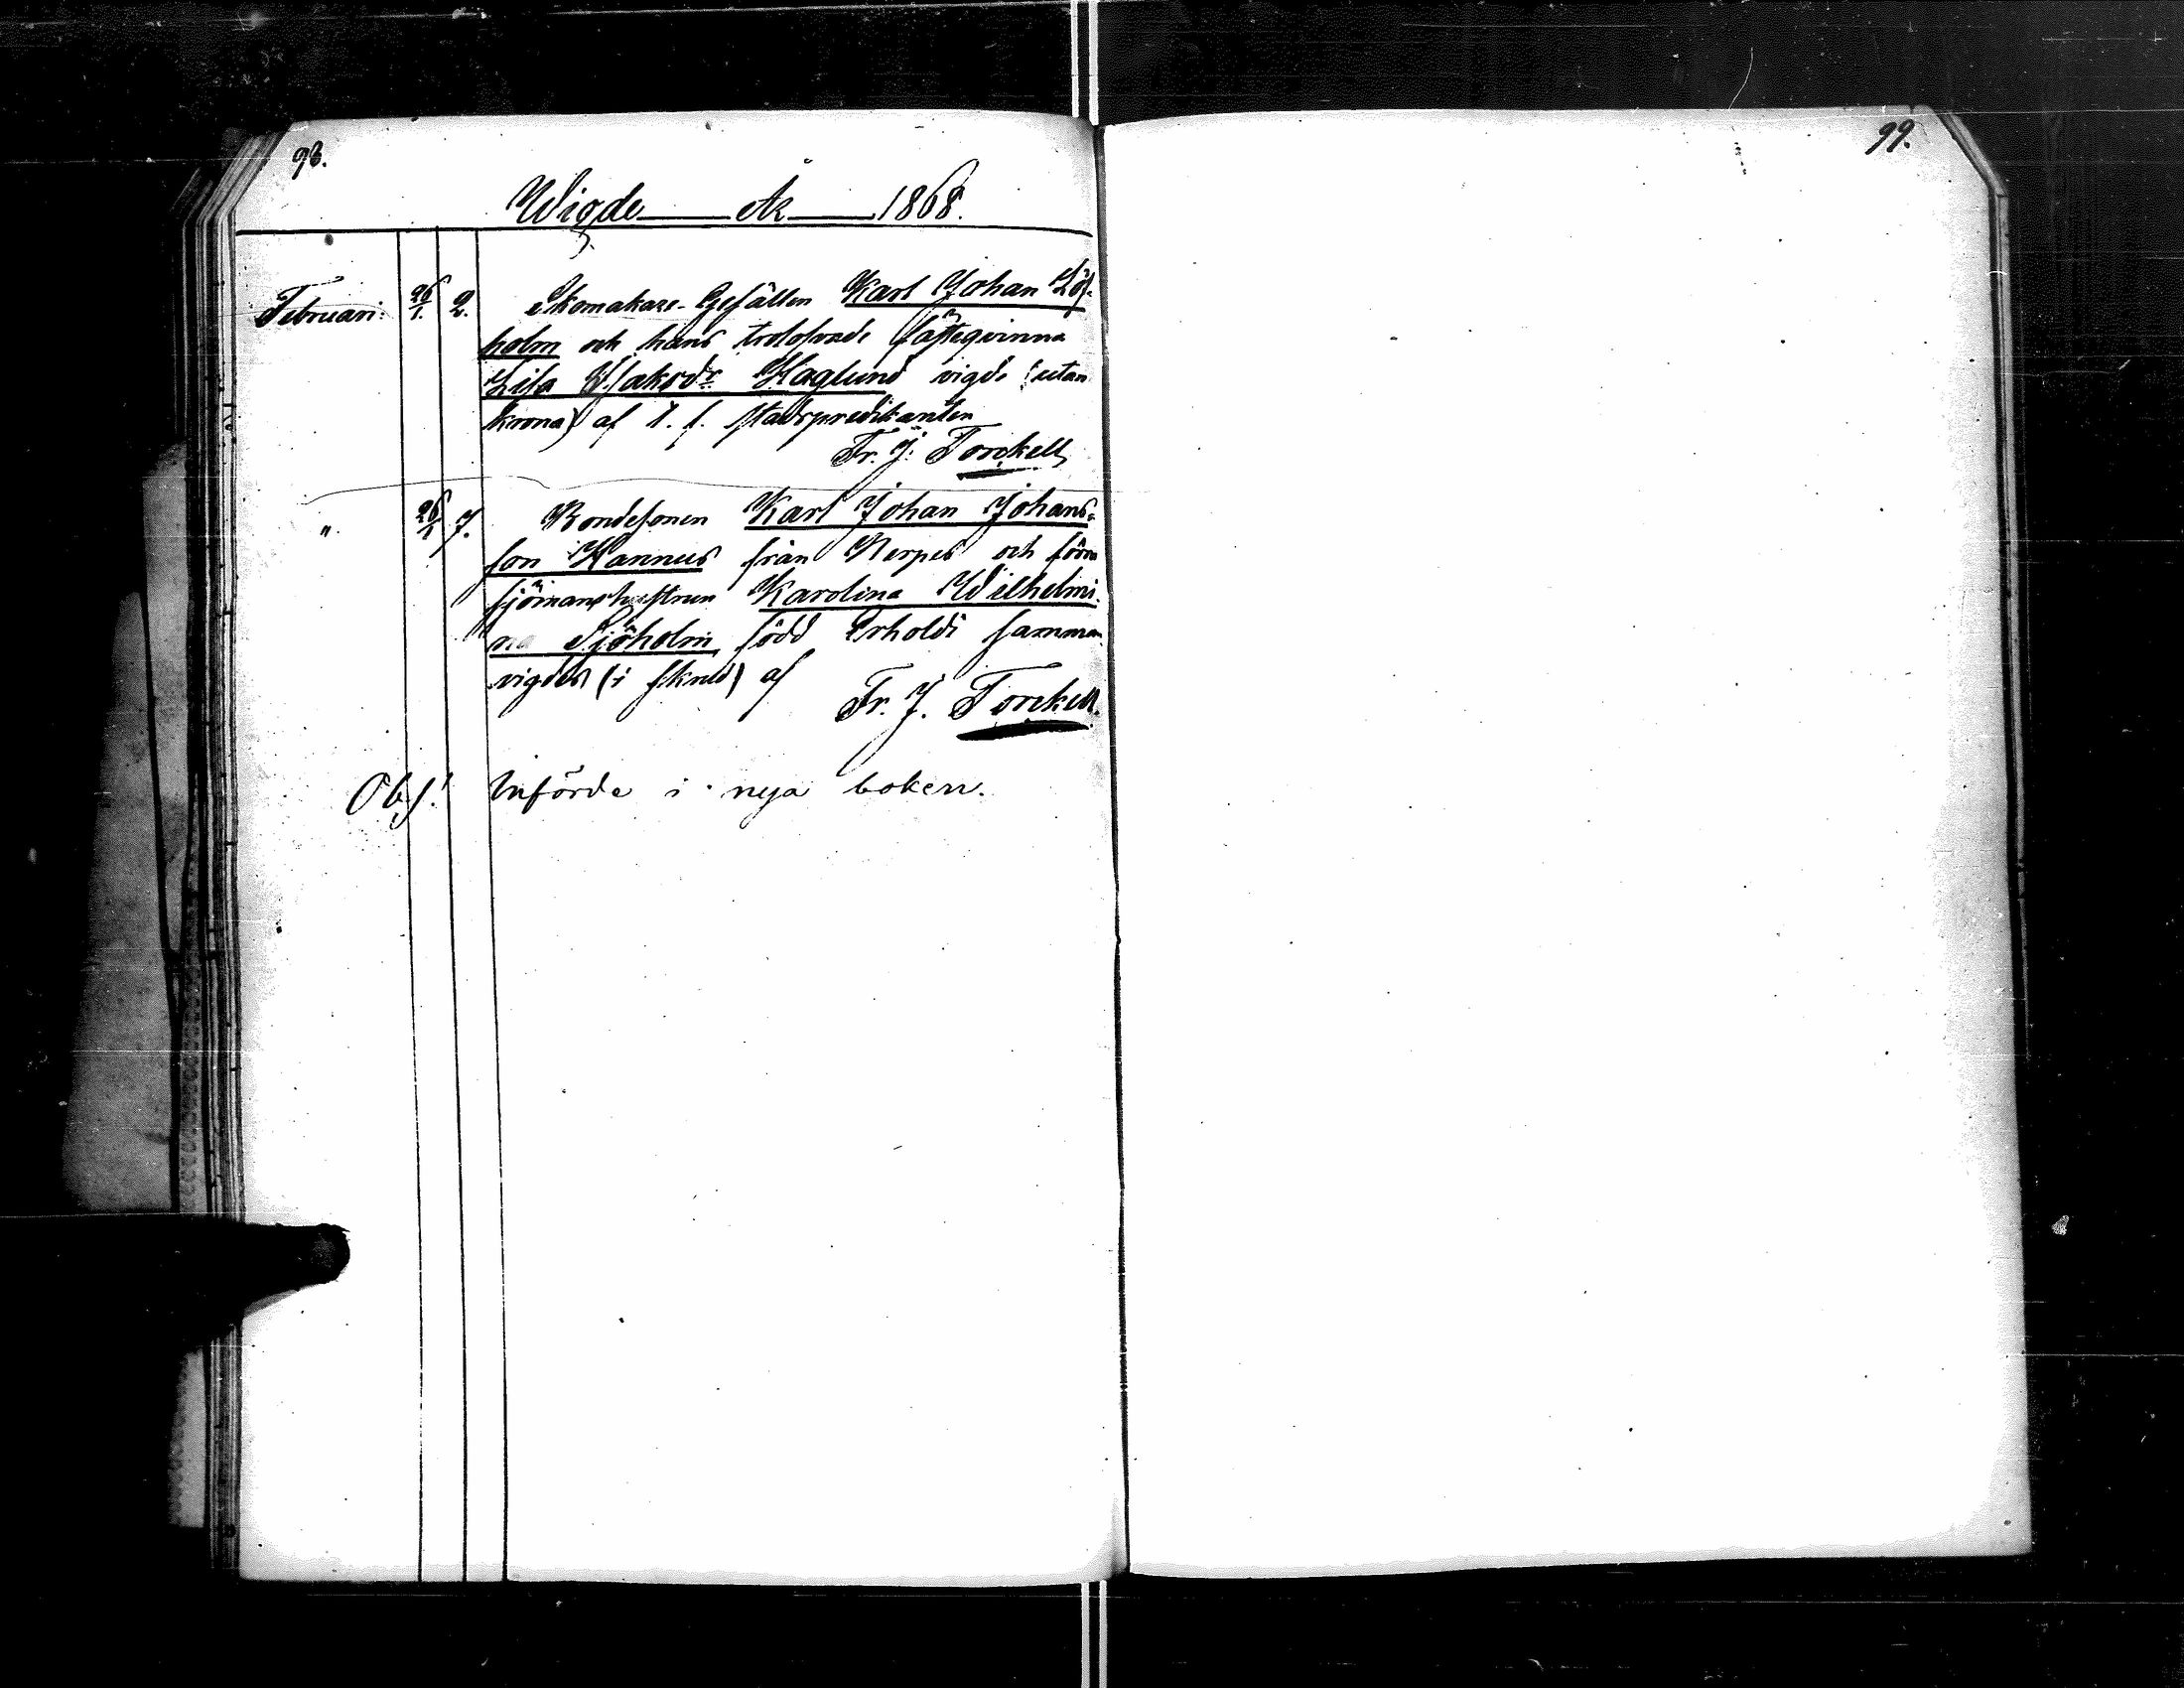 98.
99.
Wigde År 1868.
Februari: 26/1. 2. Skomakare-Gesällen Karl Johan Löf-
holm och hans trolofvade fästeqvinna
Lisa Isaksdr Haglund vigde (utan
krona) af t. f. stadspredikanten
Fr. J. Torckell
". 26/1 7. Bondesonen Karl Johan Johans-
son Hannus från Nerpes och förra
sjömanshustrun Karolina Wilhelmi-
na Sjöholm född samman
vigdes (i skrud) af
Fr. J. Torckell.
Obs! Införda i nya boken.